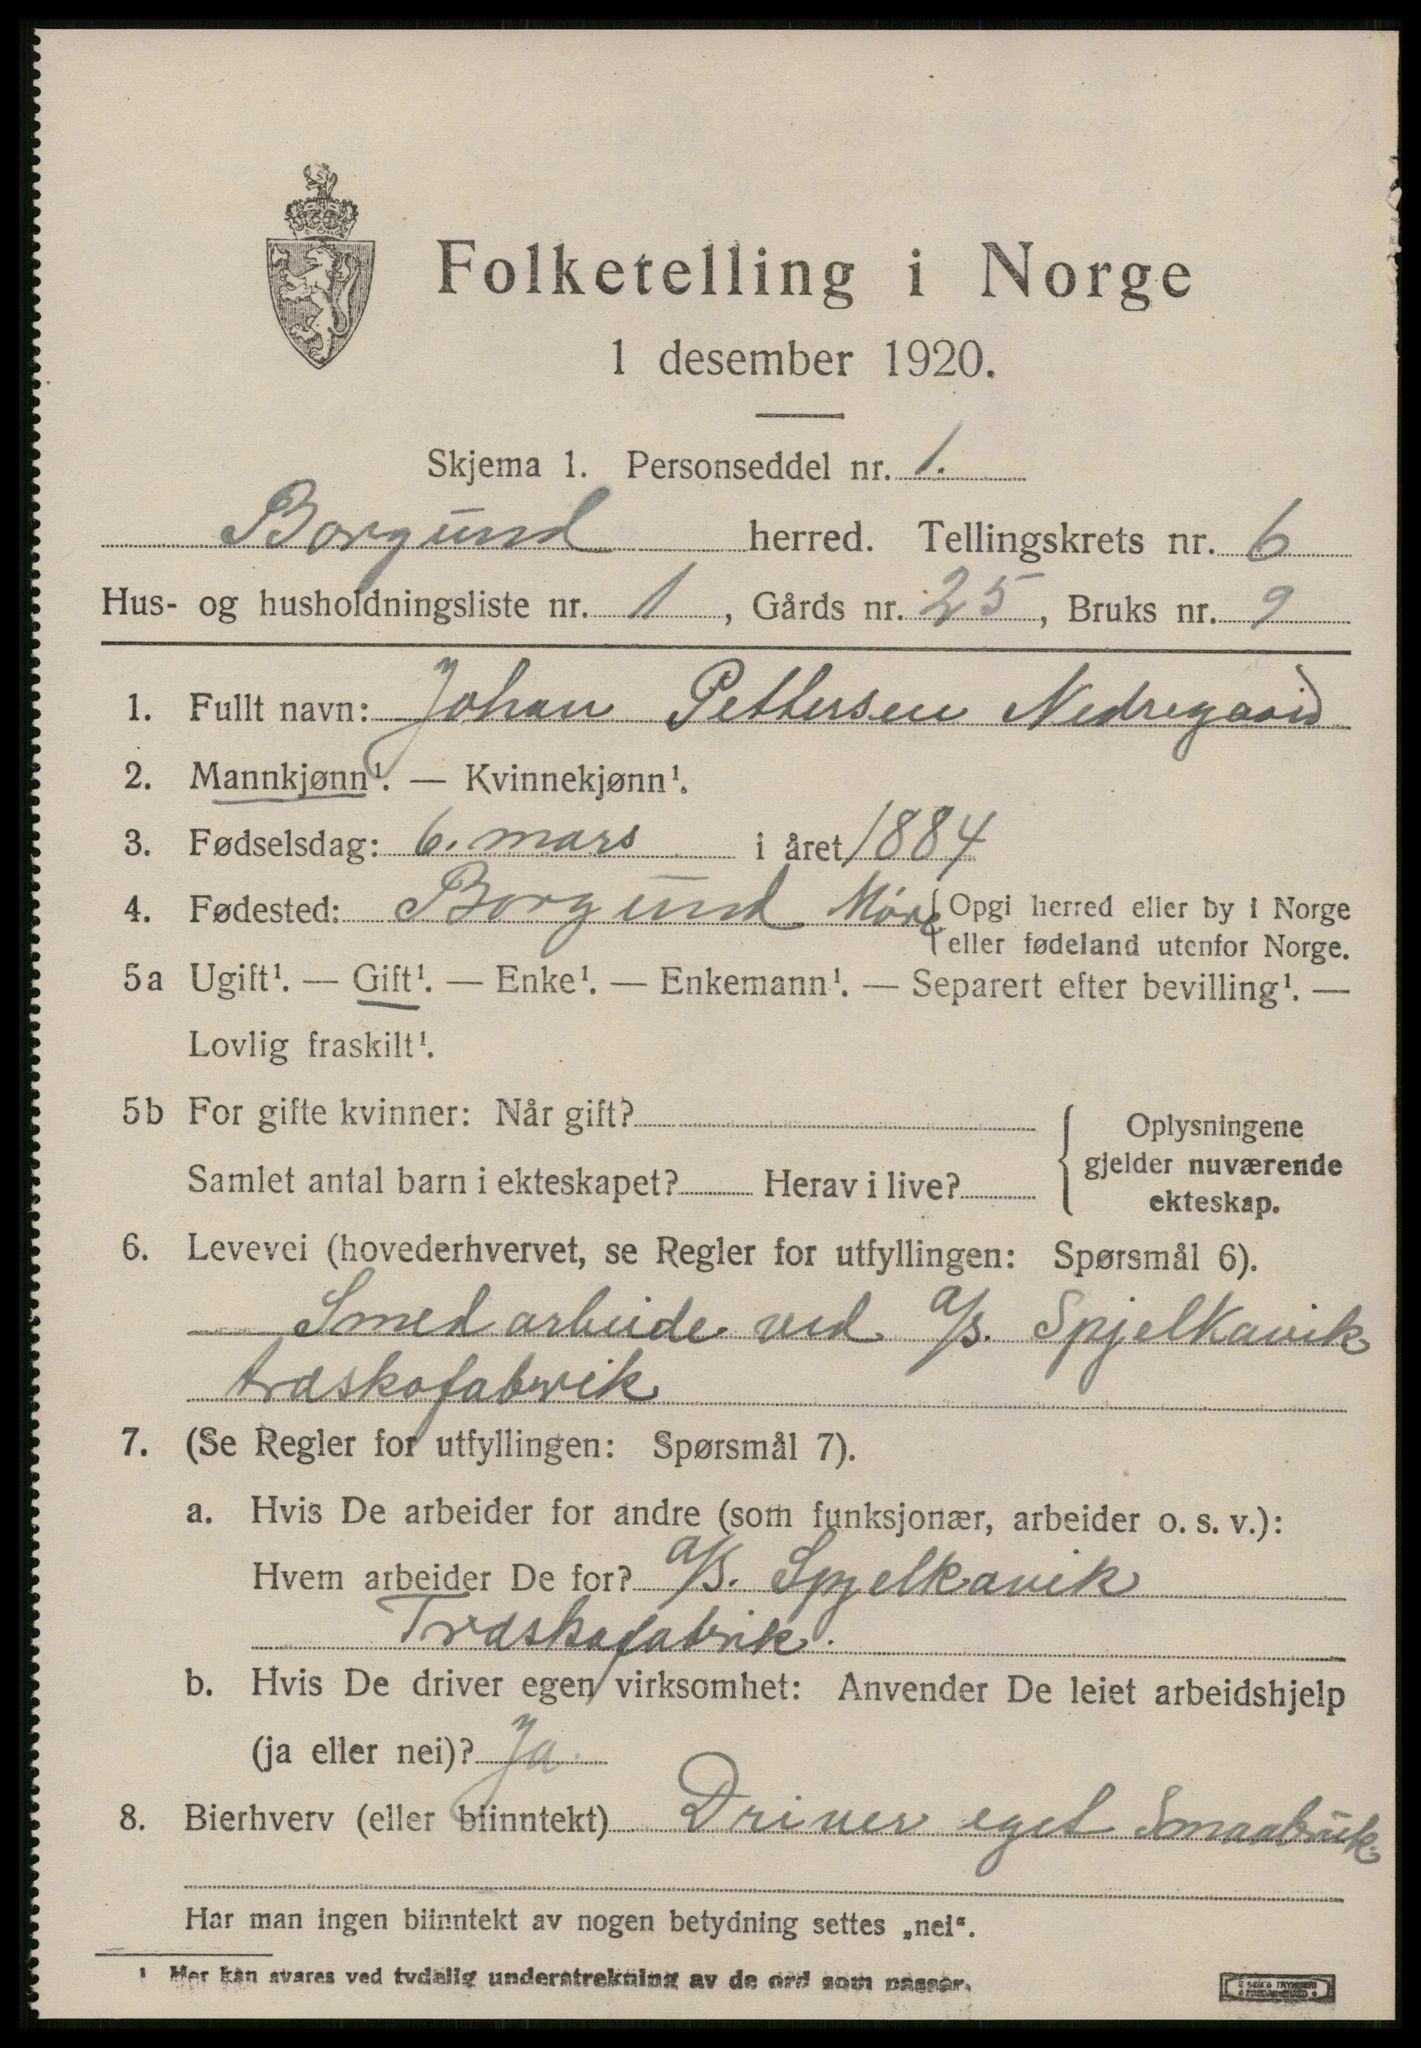 Folketelling i Norge
1 desember 1920.
Skjema 1. Personseddel nr. 1.
Borgund herred. Tellingskrets nr. 6
Hus- og husholdningsliste nr. 1, Gårds nr. 25, Bruks nr. 9
1. Fullt navn: Johan Pettersen Nedregaard
2. Mannkjønn¹. — Kvinnekjønn¹.
3. Fødselsdag: 6. mars i året 1884
4. Fødested: Borgund Møre {Opgi herred eller by i Norge
eller fødeland utenfor Norge.
5a Ugift¹. — Gift¹. — Enke¹. — Enkemann¹. — Separert efter bevilling¹. —
Lovlig fraskilt¹.
5b For gifte kvinner: Når gift?
Samlet antal barn i ekteskapet? Herav i live?
Oplysningene
gjelder nuværende
ekteskap.
6. Levevei (hovederhvervet, se Regler for utfyllingen: Spørsmål 6).
Smed arbeide ved a/s. Spjelkavik
træskofabrik
7. (Se Regler for utfyllingen: Spørsmål 7).
a. Hvis De arbeider for andre (som funksjonær, arbeider o. s. v.):
Hvem arbeider De for? a/s. Spjelkavik
Træskofabrik.
b. Hvis De driver egen virksomhet: Anvender De leiet arbeidshjelp
(ja eller nei)? Ja.
8. Bierhverv (eller biinntekt) Driver eget Smaabruk.
Har man ingen biinntekt av nogen betydning settes „nei“.
¹ Her kan svares ved tydelig understrekning av de ord som passer.